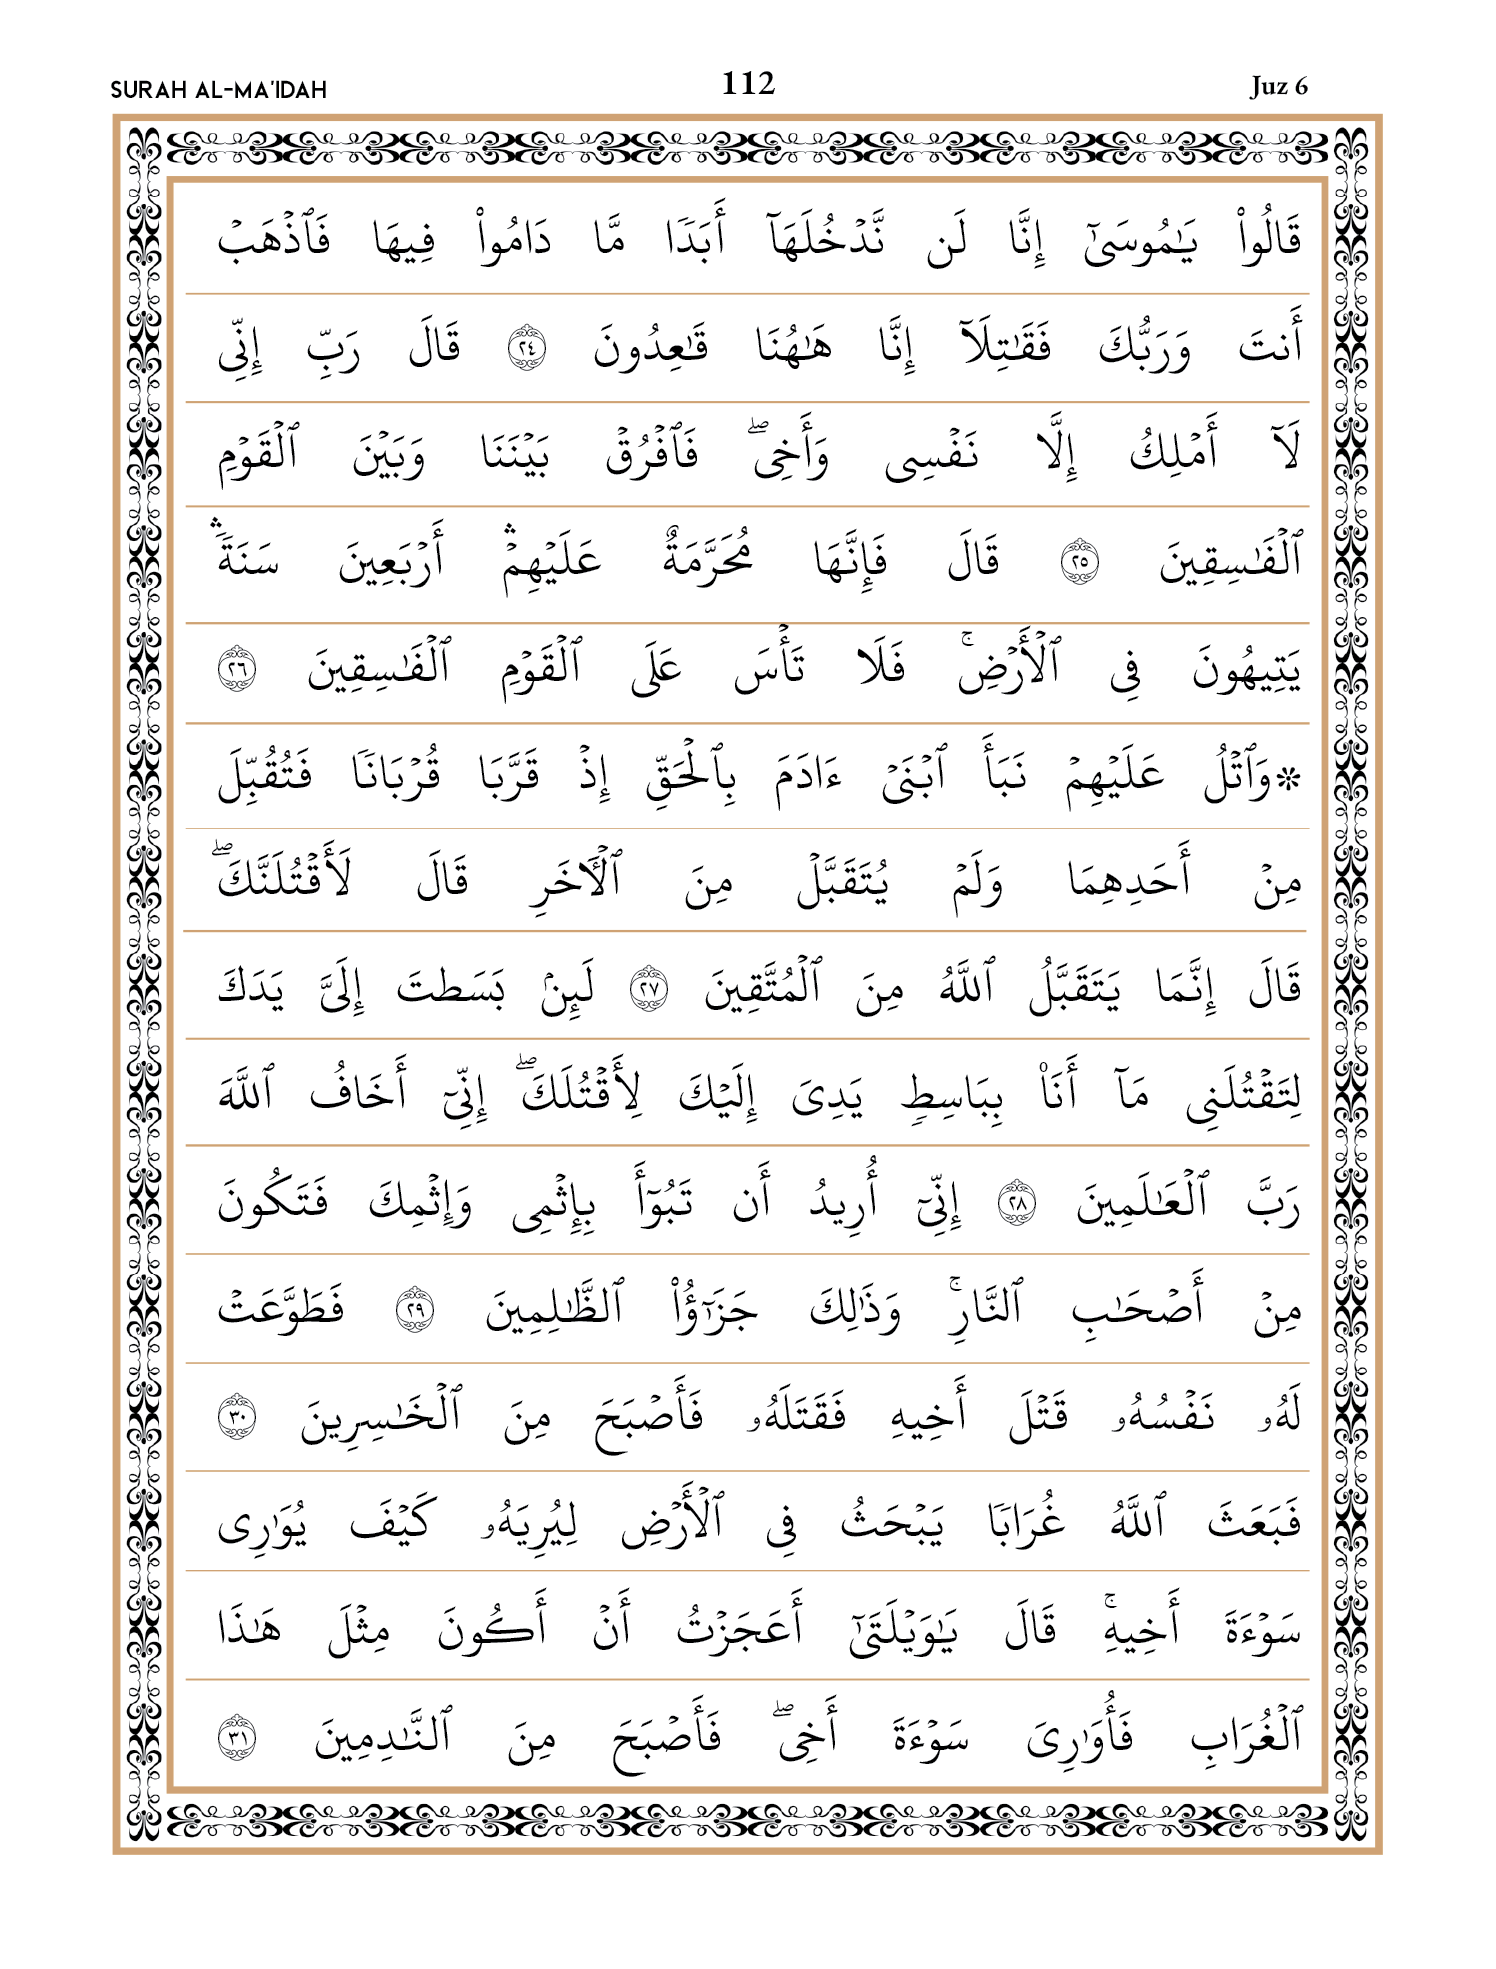 SURAH AL-MA'IDAH 112 Juz 6
قَالُوا۟ يَـٰمُوسَىٰٓ إِنَّا لَن نَّدْخُلَهَآ أَبَدًا مَّا دَامُوا۟ فِيهَا فَٱذْهَبْ
أَنتَ وَرَبُّكَ فَقَـٰتِلَآ إِنَّا هَـٰهُنَا قَـٰعِدُونَ ٢٤ قَالَ رَبِّ إِنِّى
لَآ أَمْلِكُ إِلَّا نَفْسِى وَأَخِى ۖ فَٱفْرُقْ بَيْنَنَا وَبَيْنَ ٱلْقَوْمِ
ٱلْفَـٰسِقِينَ ٢٥ قَالَ فَإِنَّهَا مُحَرَّمَةٌ عَلَيْهِمْ ۛ أَرْبَعِينَ سَنَةً ۛ
يَتِيهُونَ فِى ٱلْأَرْضِ ۚ فَلَا تَأْسَ عَلَى ٱلْقَوْمِ ٱلْفَـٰسِقِينَ ٢٦
۞وَٱتْلُ عَلَيْهِمْ نَبَأَ ٱبْنَىْ ءَادَمَ بِٱلْحَقِّ إِذْ قَرَّبَا قُرْبَانًا فَتُقُبِّلَ
مِنْ أَحَدِهِمَا وَلَمْ يُتَقَبَّلْ مِنَ ٱلْـَٔاخَرِ قَالَ لَأَقْتُلَنَّكَ ۖ
قَالَ إِنَّمَا يَتَقَبَّلُ ٱللَّهُ مِنَ ٱلْمُتَّقِينَ ٢٧ لَئِنۢ بَسَطتَ إِلَىَّ يَدَكَ
لِتَقْتُلَنِى مَآ أَنَا۠ بِبَاسِطٍ يَدِىَ إِلَيْكَ لِأَقْتُلَكَ ۖ إِنِّىٓ أَخَافُ ٱللَّهَ
رَبَّ ٱلْعَـٰلَمِينَ ٢٨ إِنِّىٓ أُرِيدُ أَن تَبُوٓأَ بِإِثْمِى وَإِثْمِكَ فَتَكُونَ
مِنْ أَصْحَـٰبِ ٱلنَّارِ ۚ وَذَٰلِكَ جَزَٰٓؤُا۟ ٱلظَّـٰلِمِينَ ٢٩ فَطَوَّعَتْ
لَهُۥ نَفْسُهُۥ قَتْلَ أَخِيهِ فَقَتَلَهُۥ فَأَصْبَحَ مِنَ ٱلْخَـٰسِرِينَ ٣٠
فَبَعَثَ ٱللَّهُ غُرَابًا يَبْحَثُ فِى ٱلْأَرْضِ لِيُرِيَهُۥ كَيْفَ يُوَٰرِى
سَوْءَةَ أَخِيهِ ۚ قَالَ يَـٰوَيْلَتَىٰٓ أَعَجَزْتُ أَنْ أَكُونَ مِثْلَ هَـٰذَا
ٱلْغُرَابِ فَأُوَٰرِىَ سَوْءَةَ أَخِى ۖ فَأَصْبَحَ مِنَ ٱلنَّـٰدِمِينَ ٣١